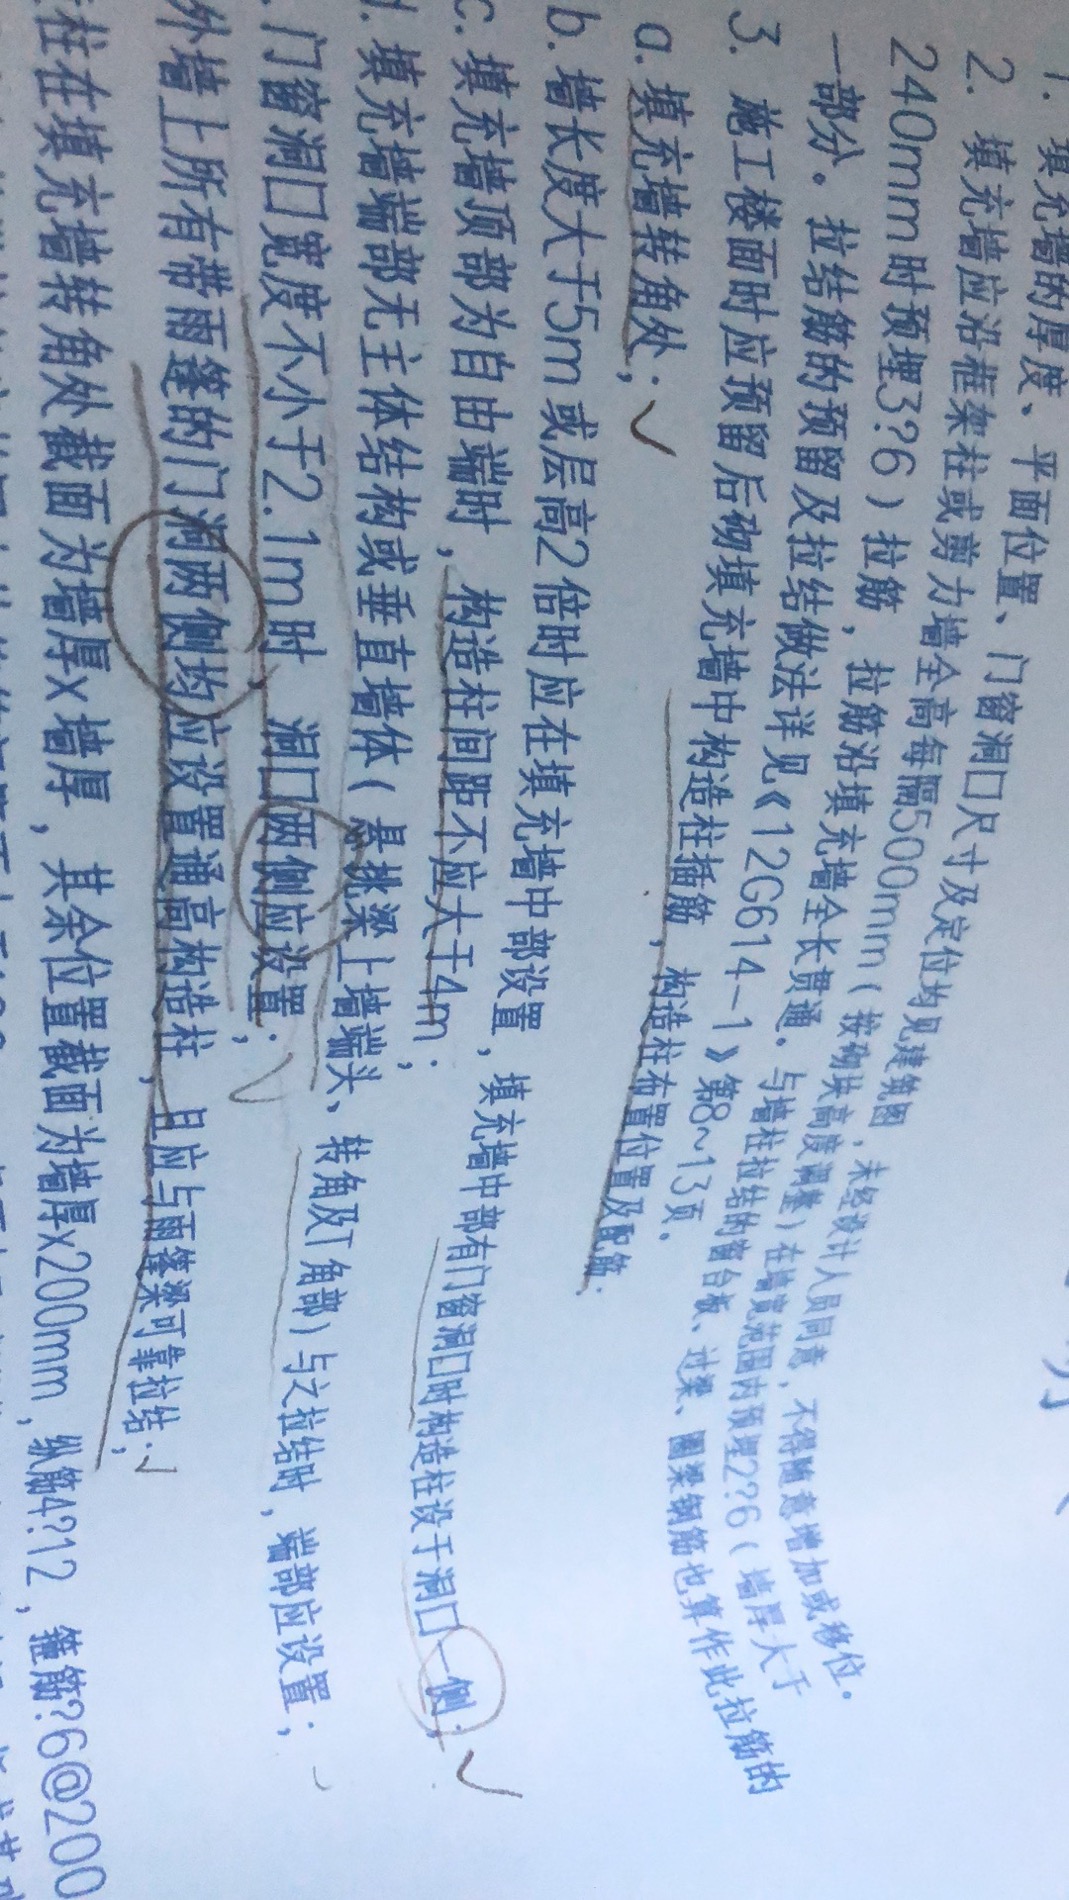 1. 填充墙的厚度、平面位置、门窗洞口尺寸及定位均见建筑图，未经设计人员同意，不得随意增加或移位。
2. 填充墙应沿框架柱或剪力墙全高每隔500mm(按砌块高度调整)在墙宽范围内预埋2?6(墙厚大于
240mm时预埋3?6)拉筋，拉筋沿填充墙全长贯通。与墙柱拉结的窗台板、过梁、圈梁钢筋也算作此拉筋的
一部分。拉结筋的预留及拉结做法详见《12G614-1》第8~13页.
3. 施工楼面时应预留后砌填充墙中构造柱插筋，构造柱布置位置及配筋:
a. 填充墙转角处；
b. 墙长度大于5m或层高2倍时应在填充墙中部设置，填充墙中部有门窗洞口时构造柱设于洞口一侧；
c. 填充墙顶部为自由端时，构造柱间距不应大于4m；
d. 填充墙端部无主体结构或垂直墙体(悬挑梁上墙端头、转角及T角部)与之拉结时，端部应设置；
.门窗洞口宽度不小于2.1m时，洞口两侧应设置；
外墙上所有带雨篷的门洞两侧均应设置通高构造柱，且应与雨篷梁可靠拉结；
柱在填充墙转角处截面为墙厚x墙厚，其余位置截面为墙厚x200mm，纵筋4?12，箍筋?6@200